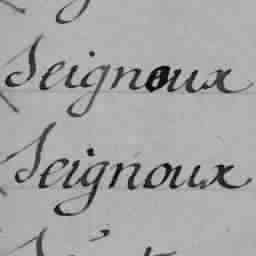 Seignoux
Seignoux